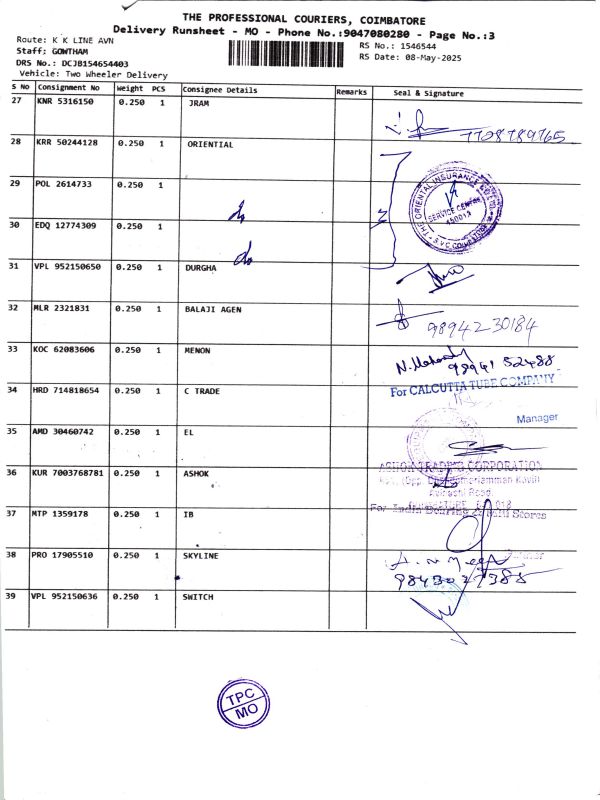 THE PROFESSIONAL COURIERS, COIMBATORE
Delivery Runsheet - MO - Phone No.:9047080280 - Page No.:3
Route: K K LINE AVN
Staff: GOWTHAM
DRS No.: DCJB154654403
Vehicle: Two Wheeler Delivery
RS No.: 1546544
RS Date: 08-May-2025
S No Consignment No Weight PCS Consignee Details Remarks Seal & Signature
27 KNR 5316150 0.250 1 JRAM
7708789765
28 KRR 50244128 0.250 1 ORIENTIAL
29 POL 2614733 0.250 1
do
THE ORIENTAL INSURANCE
SERVICE CENTRE
450013
COIMBATORE
30 EDQ 12774309 0.250 1
do
31 VPL 952150650 0.250 1 DURGHA
32 MLR 2321831 0.250 1 BALAJI AGEN
98942 30184
33 KOC 62083606 0.250 1 MENON
98941 52488
34 HRD 714818654 0.250 1 C TRADE
For CALCUTTA TUBE COMPANY
Manager
35 AMD 30460742 0.250 1 EL
36 KUR 7003768781 0.250 1 ASHOK
ASHOK TRADING CORPORATION
Avinashi Road
37 MTP 1359178 0.250 1 IB
38 PRO 17905510 0.250 1 SKYLINE
39 VPL 952150636 0.250 1 SWITCH
TPC
MO